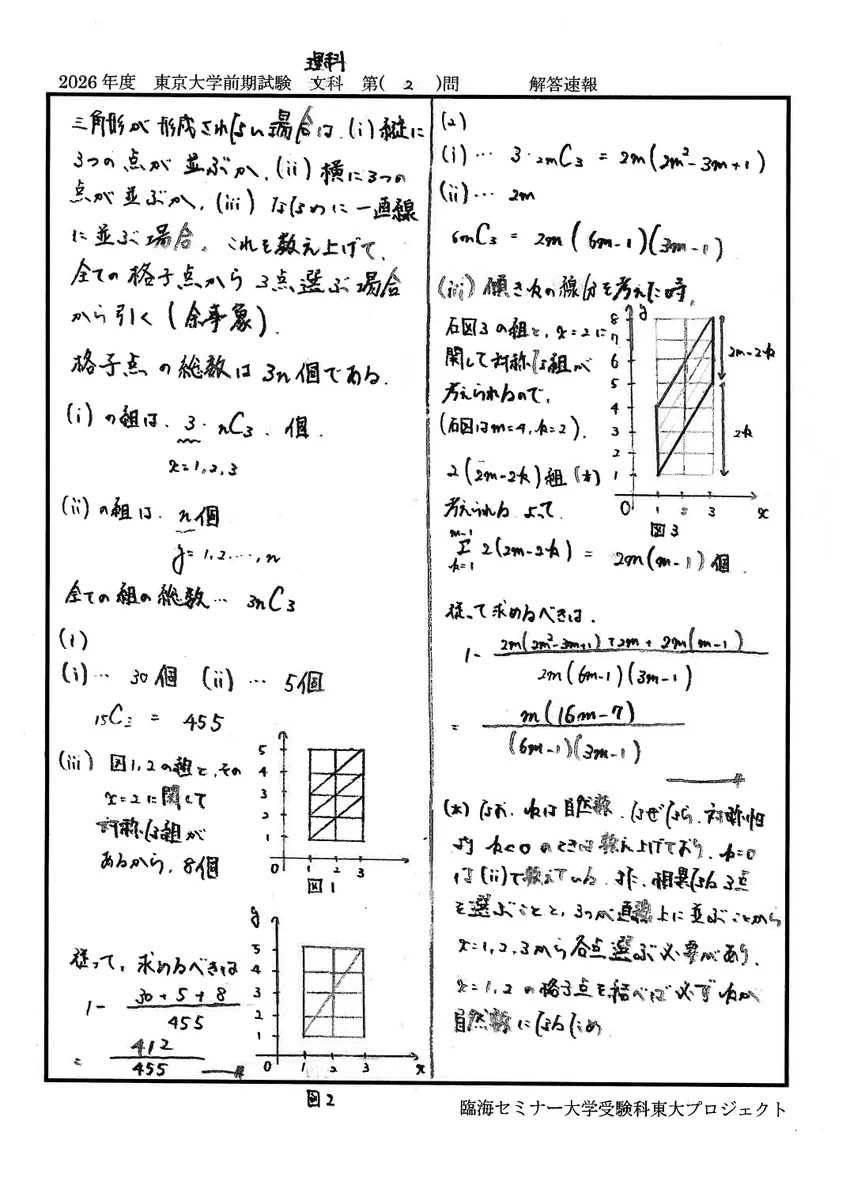 理科
2026 年度 東京大学前期試験 文科 第( 2 )問 解答速報
三角形が形成されない場合は、(i) 縦に
3つの点が並ぶか、(ii) 横に3つの
点が並ぶか、(iii) ななめに一直線
に並ぶ場合。これを数え上げて、
全ての格子点から 3点選ぶ場合
から引く (余事象).
格子点の総数は 3n個である.
(i) の組は、3・nC3 個.
x=1,2,3
(ii) の組は、n個
y=1,2,…,n
全ての組の総数… 3nC3
(1)
(i)… 30個 (ii) … 5個
15C3 = 455
(iii) 図1,2の組と、その
x=2に関して
対称な組が
あるから、8個
5
4
3
2
1
0 1 2 3
図1
従って、求めるべきは
1- (30+5+8)/455
= 412/455
y
5
4
3
2
1
0 1 2 3 x
図2
(2)
(i)… 3・2mC3 = 2m(2m²-3m+1)
(ii)… 2m
6mC3 = 2m(6m-1)(3m-1)
(iii) 傾きkの線分を考えた時,
右図3の組と、x=2に
関して対称な組が
考えられるので,
(右図はm=4, k=2).
2(2m-2k)組 (*)
考えられる よって
y
8
7
6
5
4
3
2
1
0 1 2 3 x
2m-2k
2k
図3
m-1 Σ k=1 2(2m-2k) = 2m(m-1)個.
従って求めるべきは.
1- (2m(2m²-3m+1)+2m+2m(m-1))/(2m(6m-1)(3m-1))
= m(16m-7)/((6m-1)(3m-1))
(*) なお、kは自然数. なぜなら、対称性
より k<0 のときは数え上げており、k=0
は(ii)で数えている. また、相異なる3点
を選ぶことと、3つが直線上に並ぶことから
x=1,2,3から各点選ぶ必要があり.
x=1,2 の格子点を結べば必ずkが
自然数になるため
臨海セミナー大学受験科東大プロジェクト